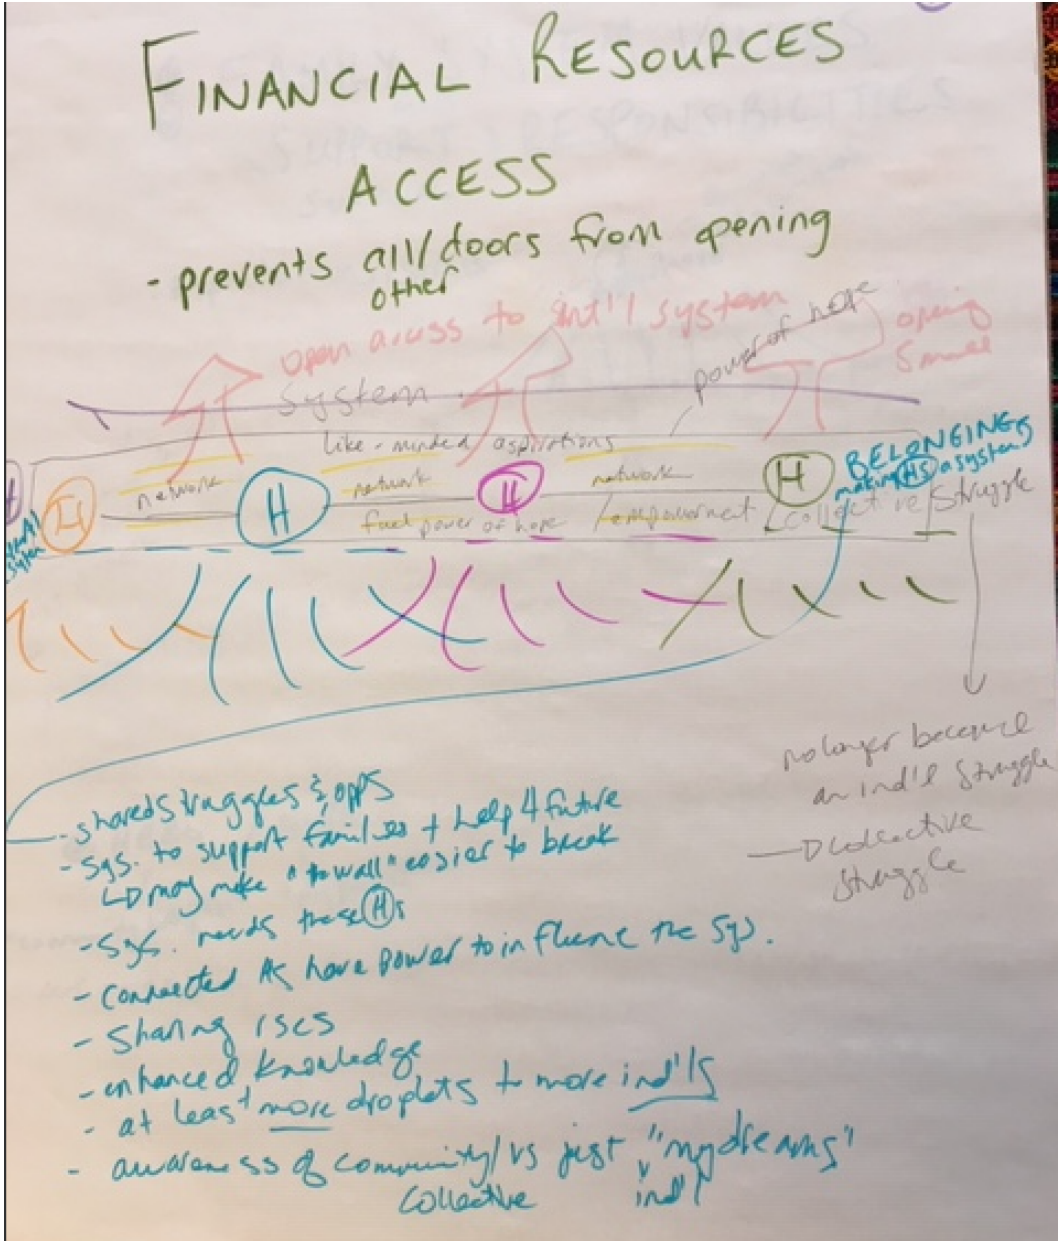 FINANCIAL RESOURCES
ACCESS
- prevents all/doors from opening
other
open access to int'l system
power of hope
opening
small
system
like-minded aspirations
BELONGING
making Hs a system
network
network
network
H
H
H
H
fuel power of hope / empowerment
collective struggle
system
no longer become
an ind'l struggle
collective
struggle
- shared struggles & opps
- sys. to support families + help 4 future
may make "wall" easier to break
- sys. needs these Hs
- connected Hs have power to influence the sys.
- sharing rscs
- enhanced knowledge
- at least more droplets to more ind'ls
- awareness of community/vs just "my dreams"
collective
ind'l